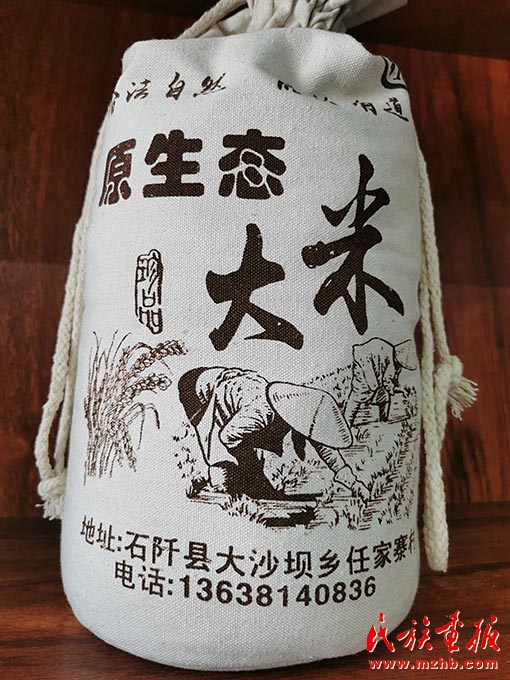 法自然 道
原生态
大米
珍品
地址:石阡县大沙坝乡任家寨村
电话:13638140836
民族画报
www.mzhb.com